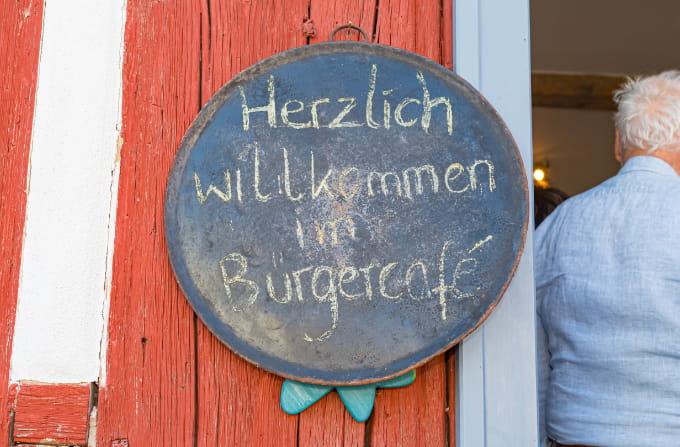 Herzlich
willkommen
im
Bürgercafé